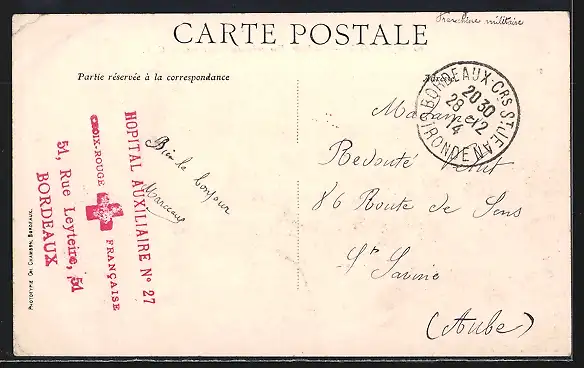 Franchise militaire
CARTE POSTALE
Partie réservée à la correspondance
Adresse
BORDEAUX-CRS ST JEAN
2030
28 - 12
14
GIRONDE
Madame
Redouté Petit
86 Route de Sens
Ste Savine
(Aube)
Bien le bonjour
Marceau
HOPITAL AUXILIAIRE N° 27
CROIX-ROUGE FRANÇAISE
51, Rue Leyteire, 51
BORDEAUX
PHOTOTYPIE CH. CHAMBON, BORDEAUX.